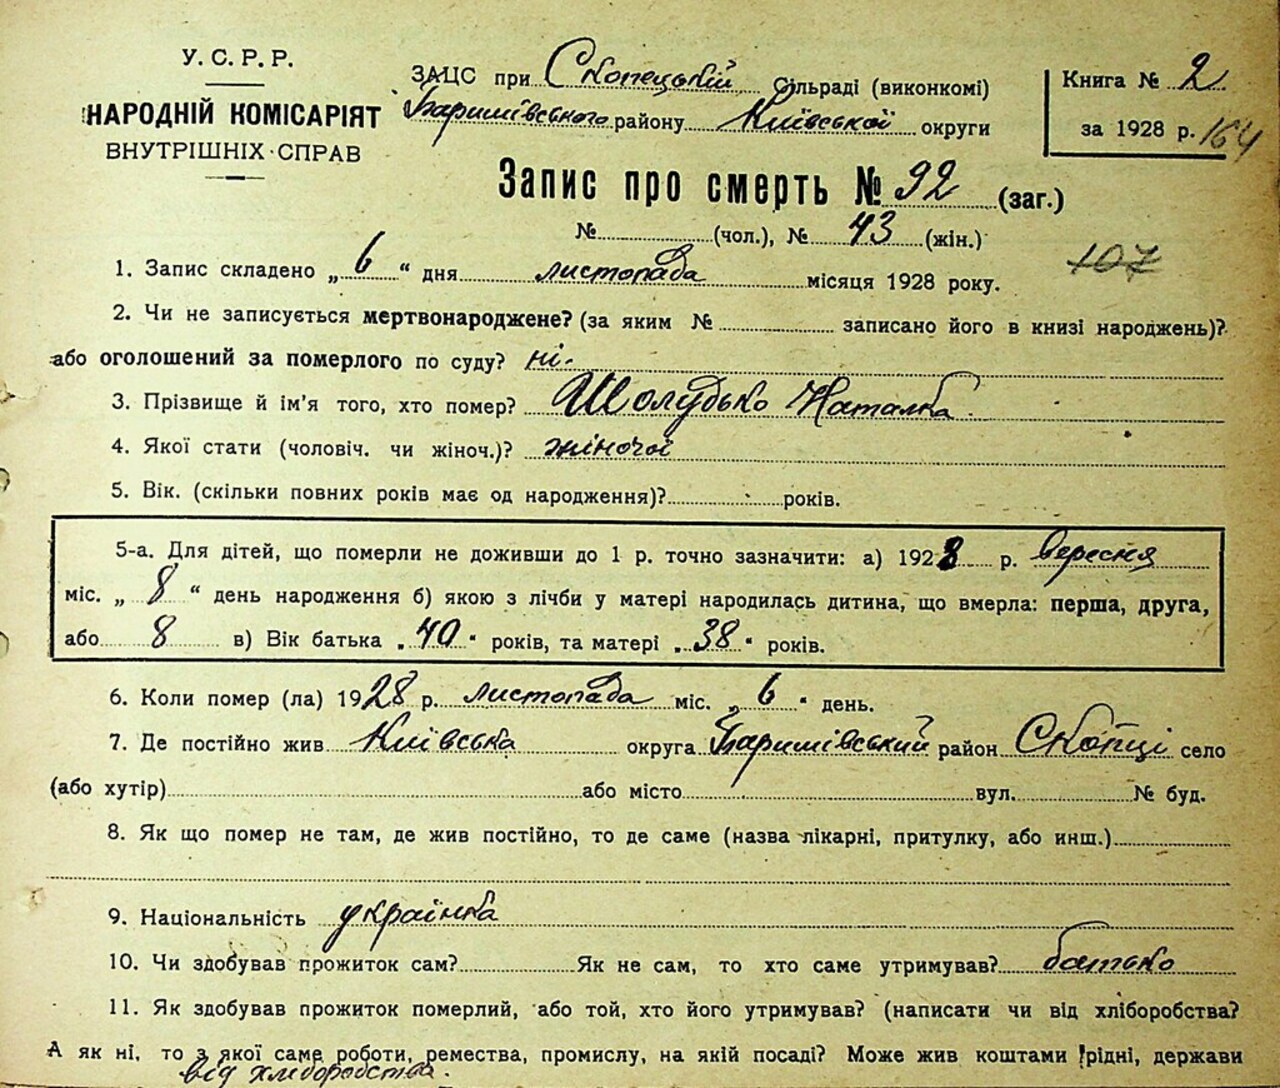 У.С.Р.Р.
НАРОДНІЙ КОМІСАРІЯТ
ВНУТРІШНІХ СПРАВ
ЗАЦС при Скопецькій Сільраді (виконкомі)
Баришівського району Київської округи
Книга № 2
за 1928 р. 164
Запис про смерть № 92 (заг.)
№ (чол.), № 43 (жін.)
107
1. Запис складено „ 6 “ дня листопада місяця 1928 року.
2. Чи не записується мертвонароджене? (за яким № записано його в книзі народжень)?
або оголошений за померлого по суду? ні.
3. Прізвище й ім'я того, хто помер? Шолудько Наталка.
4. Якої стати (чоловіч. чи жіноч.)? жіночої
5. Вік. (скільки повних років має од народження)? років.
5-а. Для дітей, що померли не доживши до 1 р. точно зазначити: а) 1928 р. вересня
міс. „ 8 “ день народження б) якою з лічби у матері народилась дитина, що вмерла: перша, друга,
або 8 в) Вік батька „40“ років, та матері „38“ років.
6. Коли помер (ла) 1928 р. листопада міс. „ 6 “ день.
7. Де постійно жив Київська округа Баришівський район Скопці село
(або хутір) або місто вул. № буд.
8. Як що помер не там, де жив постійно, то де саме (назва лікарні, притулку, або инш.)
9. Національність українка
10. Чи здобував прожиток сам? Як не сам, то хто саме утримував? батько
11. Як здобував прожиток померлий, або той, хто його утримував? (написати чи від хліборобства?
А як ні, то з якої саме роботи, ремества, промислу, на якій посаді? Може жив коштами рідні, держави
від хліборобства.